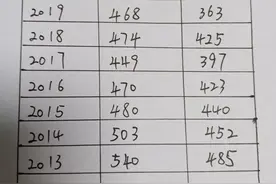 2019 468 363
2018 474 425
2017 449 397
2016 470 423
2015 480 440
2014 503 452
2013 540 485